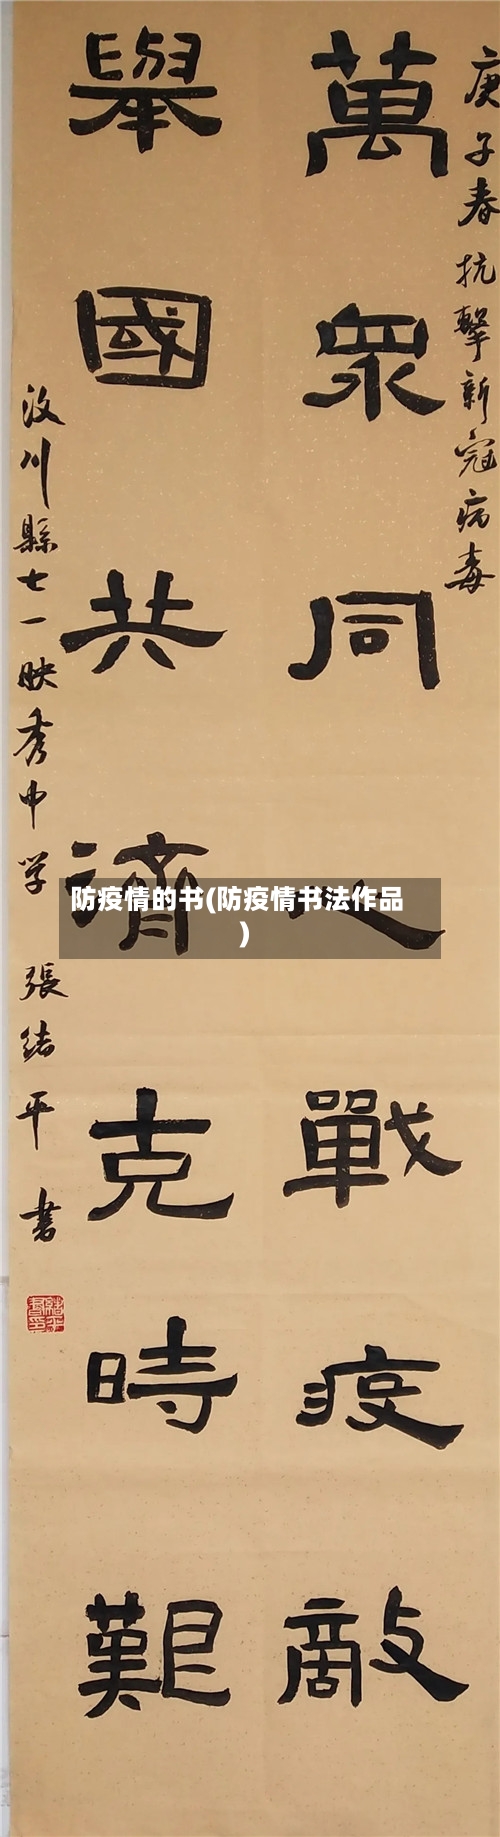 庚子春抗擊新冠病毒
萬眾同戰疫敵
舉國共濟克時艱
汶川縣七一映秀中学 張緒平 書
防疫情的书(防疫情书法作品
)